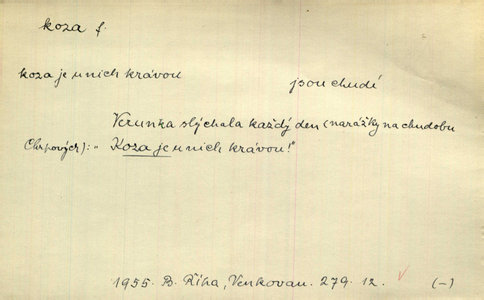 koza f.
koza je u nich krávou jsou chudí
Verunka slýchala každý den (narážky na chudobu
Chrpových): „Koza je u nich krávou!"
1955 B. Říha, Venkovan. 279. 12. (–)